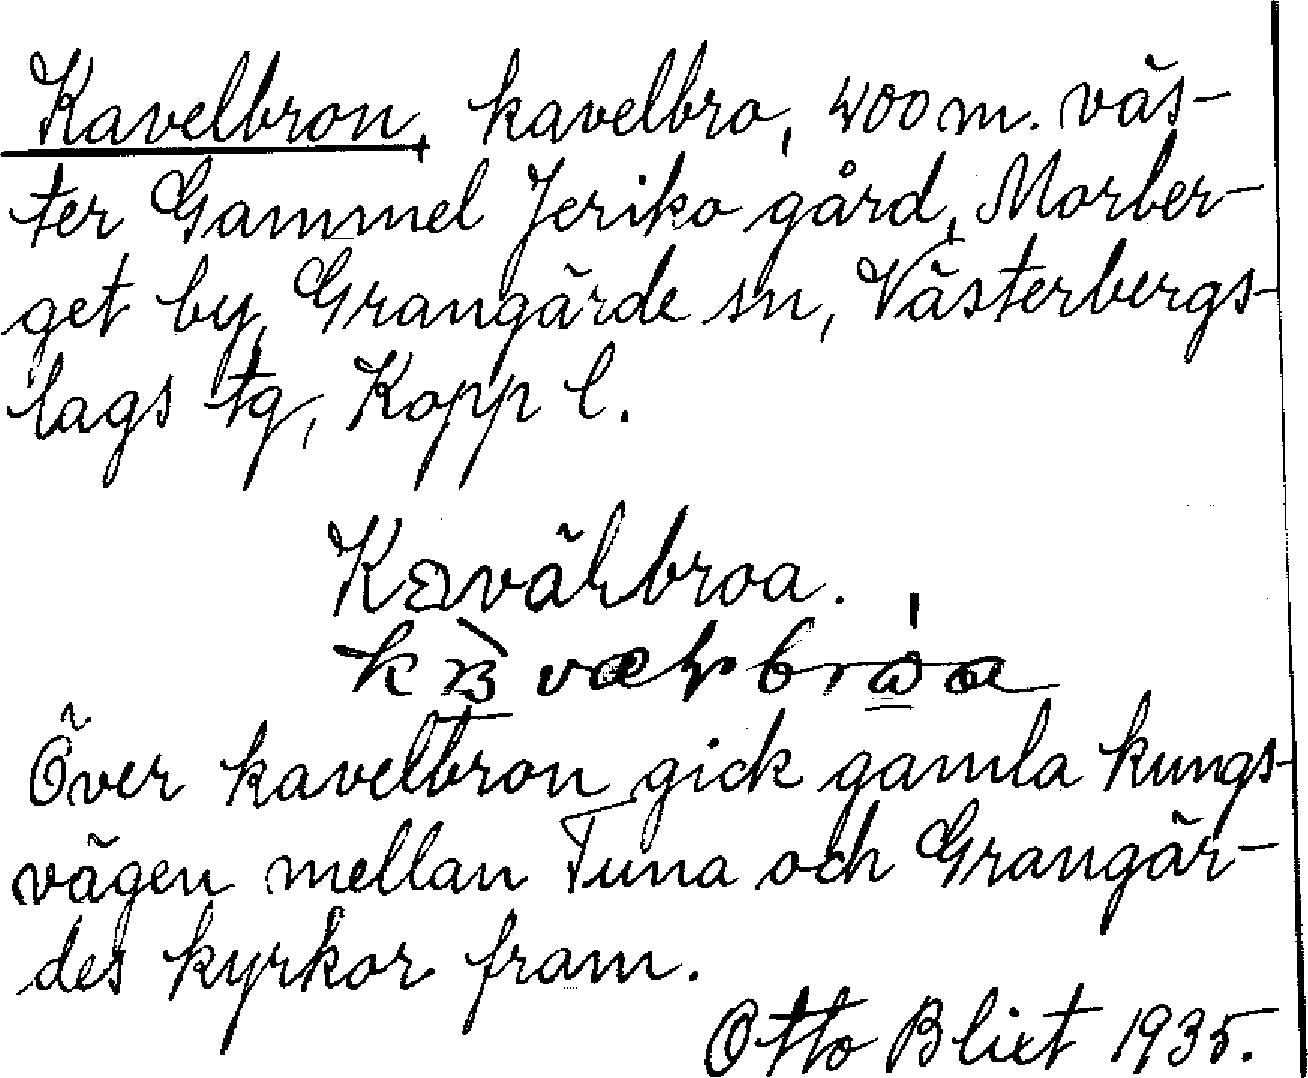 Kavelbron, kavelbro, 400 m. väs-
ter Gammel Jeriko gård, Morber-
get by, Grangärde sn, Västerbergs-
lags tg, Kopp l.
Över kavelbron gick gamla kungs-
vägen mellan Tuna och Grangär-
des kyrkor fram.
Otto Blixt 1935.